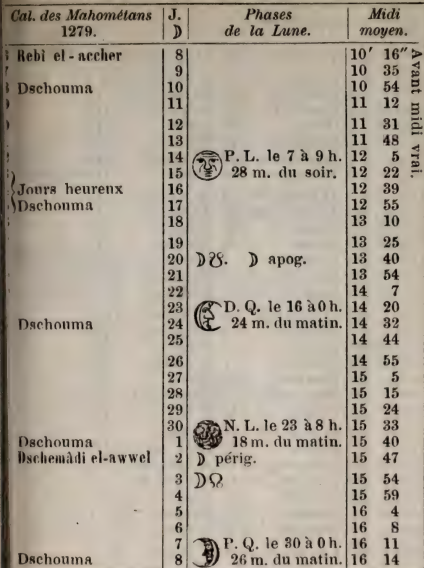 Cal. des Mahométans J. Phases Midi
1279. ☽ de la Lune. moyen.
Rebî el-accher 8 10′ 16″
9 10 35
Dschouma 10 10 54
11 11 12
12 11 31
13 11 48
14 P. L. le 7 à 9 h. 12 5
15 28 m. du soir. 12 22
Jours heureux 16 12 39
Dschouma 17 12 55
18 13 10
19 13 25
20 ☽☋. ☽ apog. 13 40
21 13 54
22 14 7
23 D. Q. le 16 à 0 h. 14 20
Dschouma 24 24 m. du matin. 14 32
25 14 44
26 14 55
27 15 5
28 15 15
29 15 24
30 N. L. le 23 à 8 h. 15 33
Dschouma 1 18 m. du matin. 15 40
Dschemâdi el-awwel 2 ☽ périg. 15 47
3 ☽☊ 15 54
4 15 59
5 16 4
6 16 8
7 P. Q. le 30 à 0 h. 16 11
Dschouma 8 26 m. du matin. 16 14
Avant midi vrai.